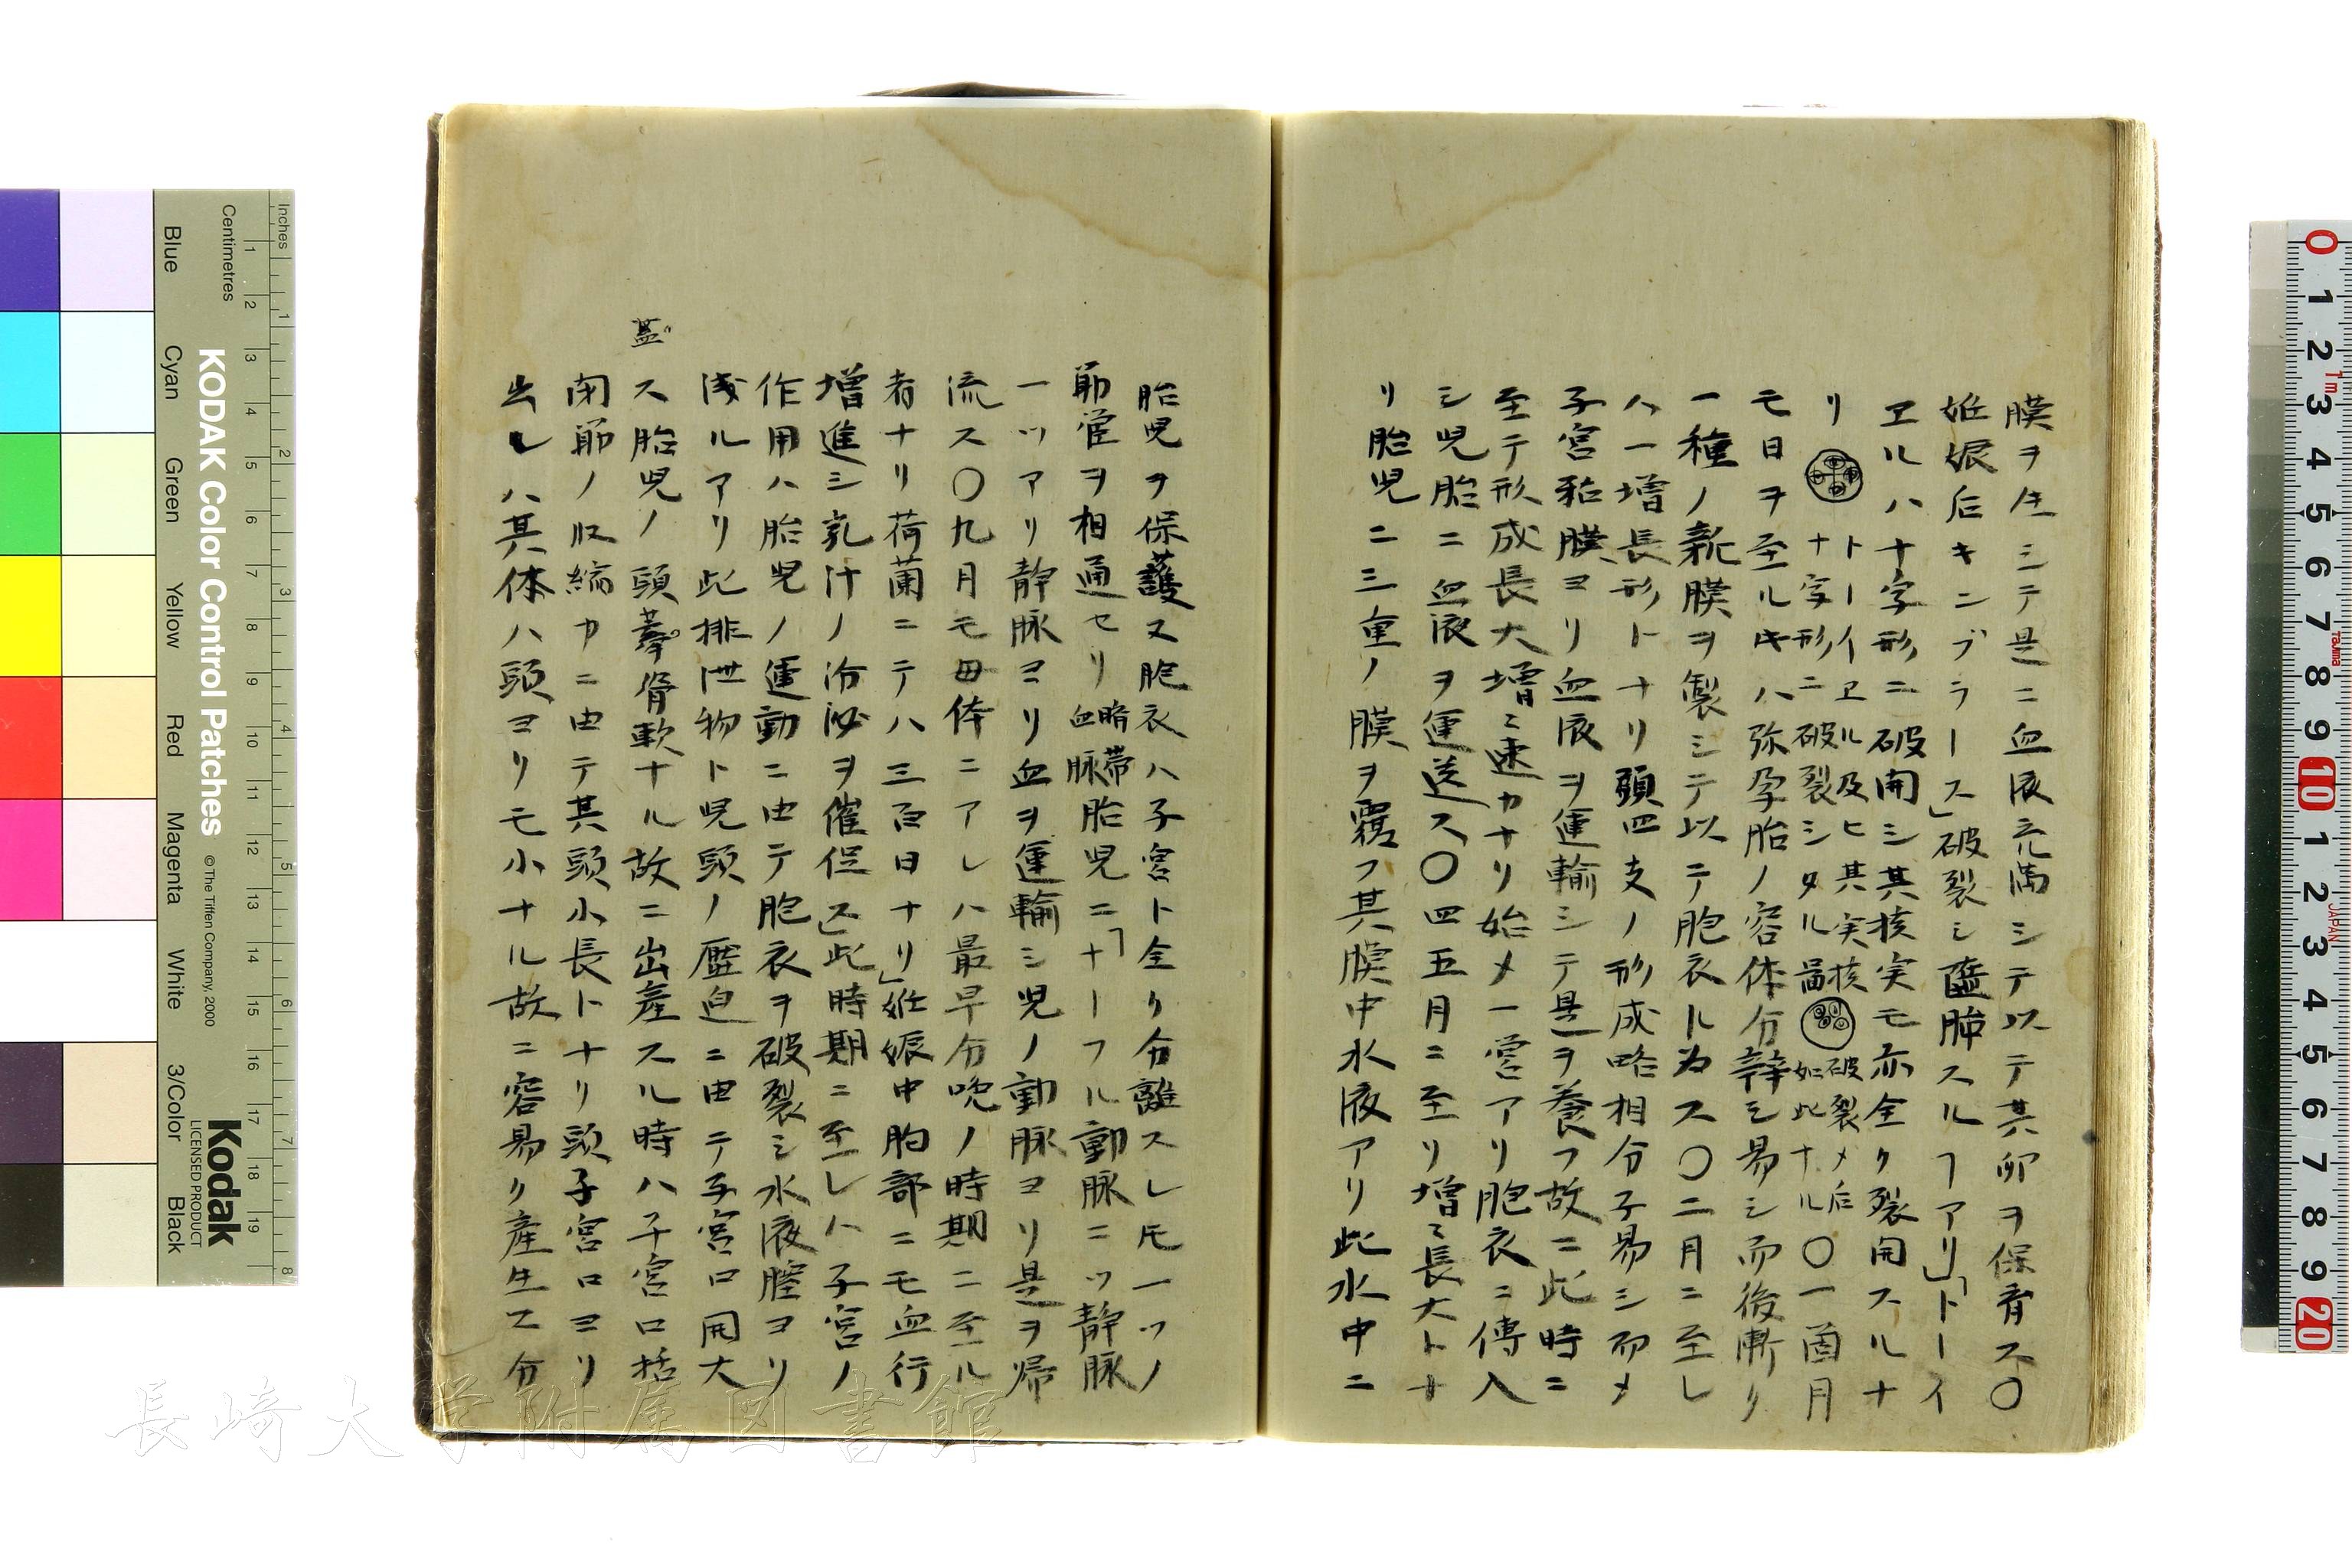 膜ヲ生シテ是ニ血液充満シテ以テ其卵ヲ保育ス〇
妊娠后キンブラース」破裂シ蓝肺スルヿアリ」「トーイ
ヱルハ十字形ニ破開シ其核実モ亦全ク裂開スルナ
リ
トーイヱル及ヒ其実核
十字形ニ破裂シタル啚
破裂メ后
如此ナル
〇一箇月
モ日ヲ至ルキハ弥孕胎ノ容体分辨シ易シ而後漸ク
一種ノ新膜ヲ製シテ以テ胞衣ト為ス〇二月ニ至レ
ハ一増長形トナリ頭四支ノ形成略相分子易シ而メ
子宮粘膜ヨリ血液ヲ運輸シテ是ヲ養フ故ニ此時ニ
至テ形成長大増々速カナリ始メ一宮アリ胞衣ニ傳入
シ児胎ニ血液ヲ運送ス〇四五月ニ至リ増々長大トナ
リ胎児ニ三重ノ膜ヲ覆フ其膜中水液アリ此水中ニ
胎児ヲ保護ス胞衣ハ子宮ト全ク分離スレ𪜈一ツノ
節管ヲ相通セリ
臍帯
血脈
胎児ニ「ナーフル動脈ニツ静脈
一ツアリ静脈ヨリ血ヲ運輸シ児ノ動脈ヨリ是ヲ帰
流ス〇九月モ母体ニアレハ最早分娩ノ時期ニ至ル
者ナリ荷蘭ニテハ三百日ナリ」妊娠中胸部ニモ血行
増進シ乳汁ノ分泌ヲ催促ス」此時期ニ至レハ子宮ノ
作用ハ胎児ノ運動ニ由テ胞衣ヲ破裂シ水液膣ヨリ
洩ルアリ此排泄物ト児頭ノ壓迫ニ由テ子宮口開大
ス胎児ノ頭蓋骨軟ナル故ニ出産スル時ハ子宮口括
蓋
閉節ノ収縮力ニ由テ其頭小長トナリ頭子宮口ヨリ
出レハ其体ハ頭ヨリモ小ナル故ニ容易ク産生ス分
長崎大学附属図書館
KODAK Color Control Patches
© The Tiffen Company, 2000
Kodak
LICENSED PRODUCT
Inches
Centimetres
Blue
Cyan
Green
Yellow
Red
Magenta
White
3/Color
Black
JAPAN